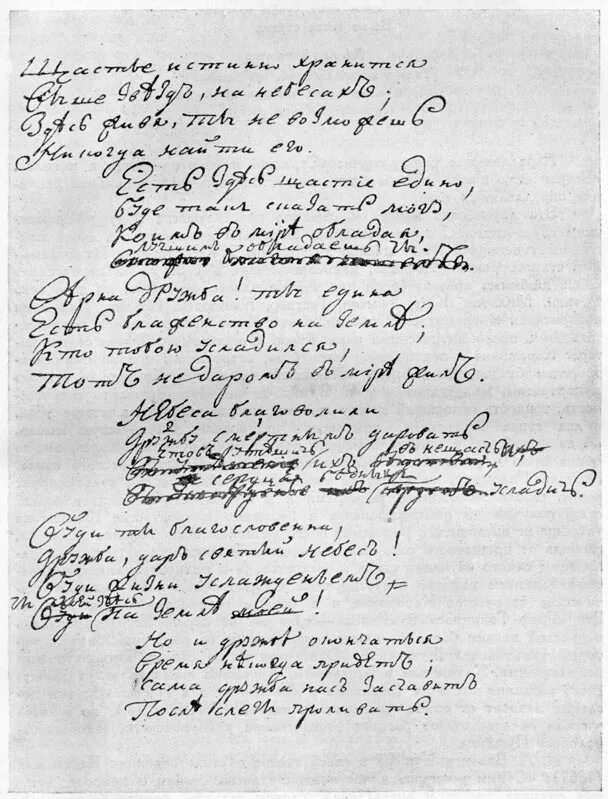 Щастье истинно хранится
Выше звѣздъ, на небесахъ;
Здѣсь живя, ты не возможешь
Никогда найти его.
Есть здѣсь щастіе едино,
Буде такъ сказать могу,
Коимъ въ мірѣ обладая,
Лучшимъ обладаешь ты.
Вѣрна дружба! ты едина
Есть блаженство на землѣ;
Кто тобою усладился,
Тотъ недаромъ въ мірѣ жилъ.
Небеса благоволили
Дружбу смертнымъ даровать
Чтобъ утѣшить ихъ въ нещастьи,
и сердца бѣдныхъ усладить.
Буди ты благословенна,
Дружба, даръ святый небесъ!
Буди жизни услажденьемъ
ты моей здѣсь на землѣ!
Но и дружбѣ окончаться
Время нѣкогда придетъ;
Сама дружба насъ заставитъ
Послѣ слезы проливать.